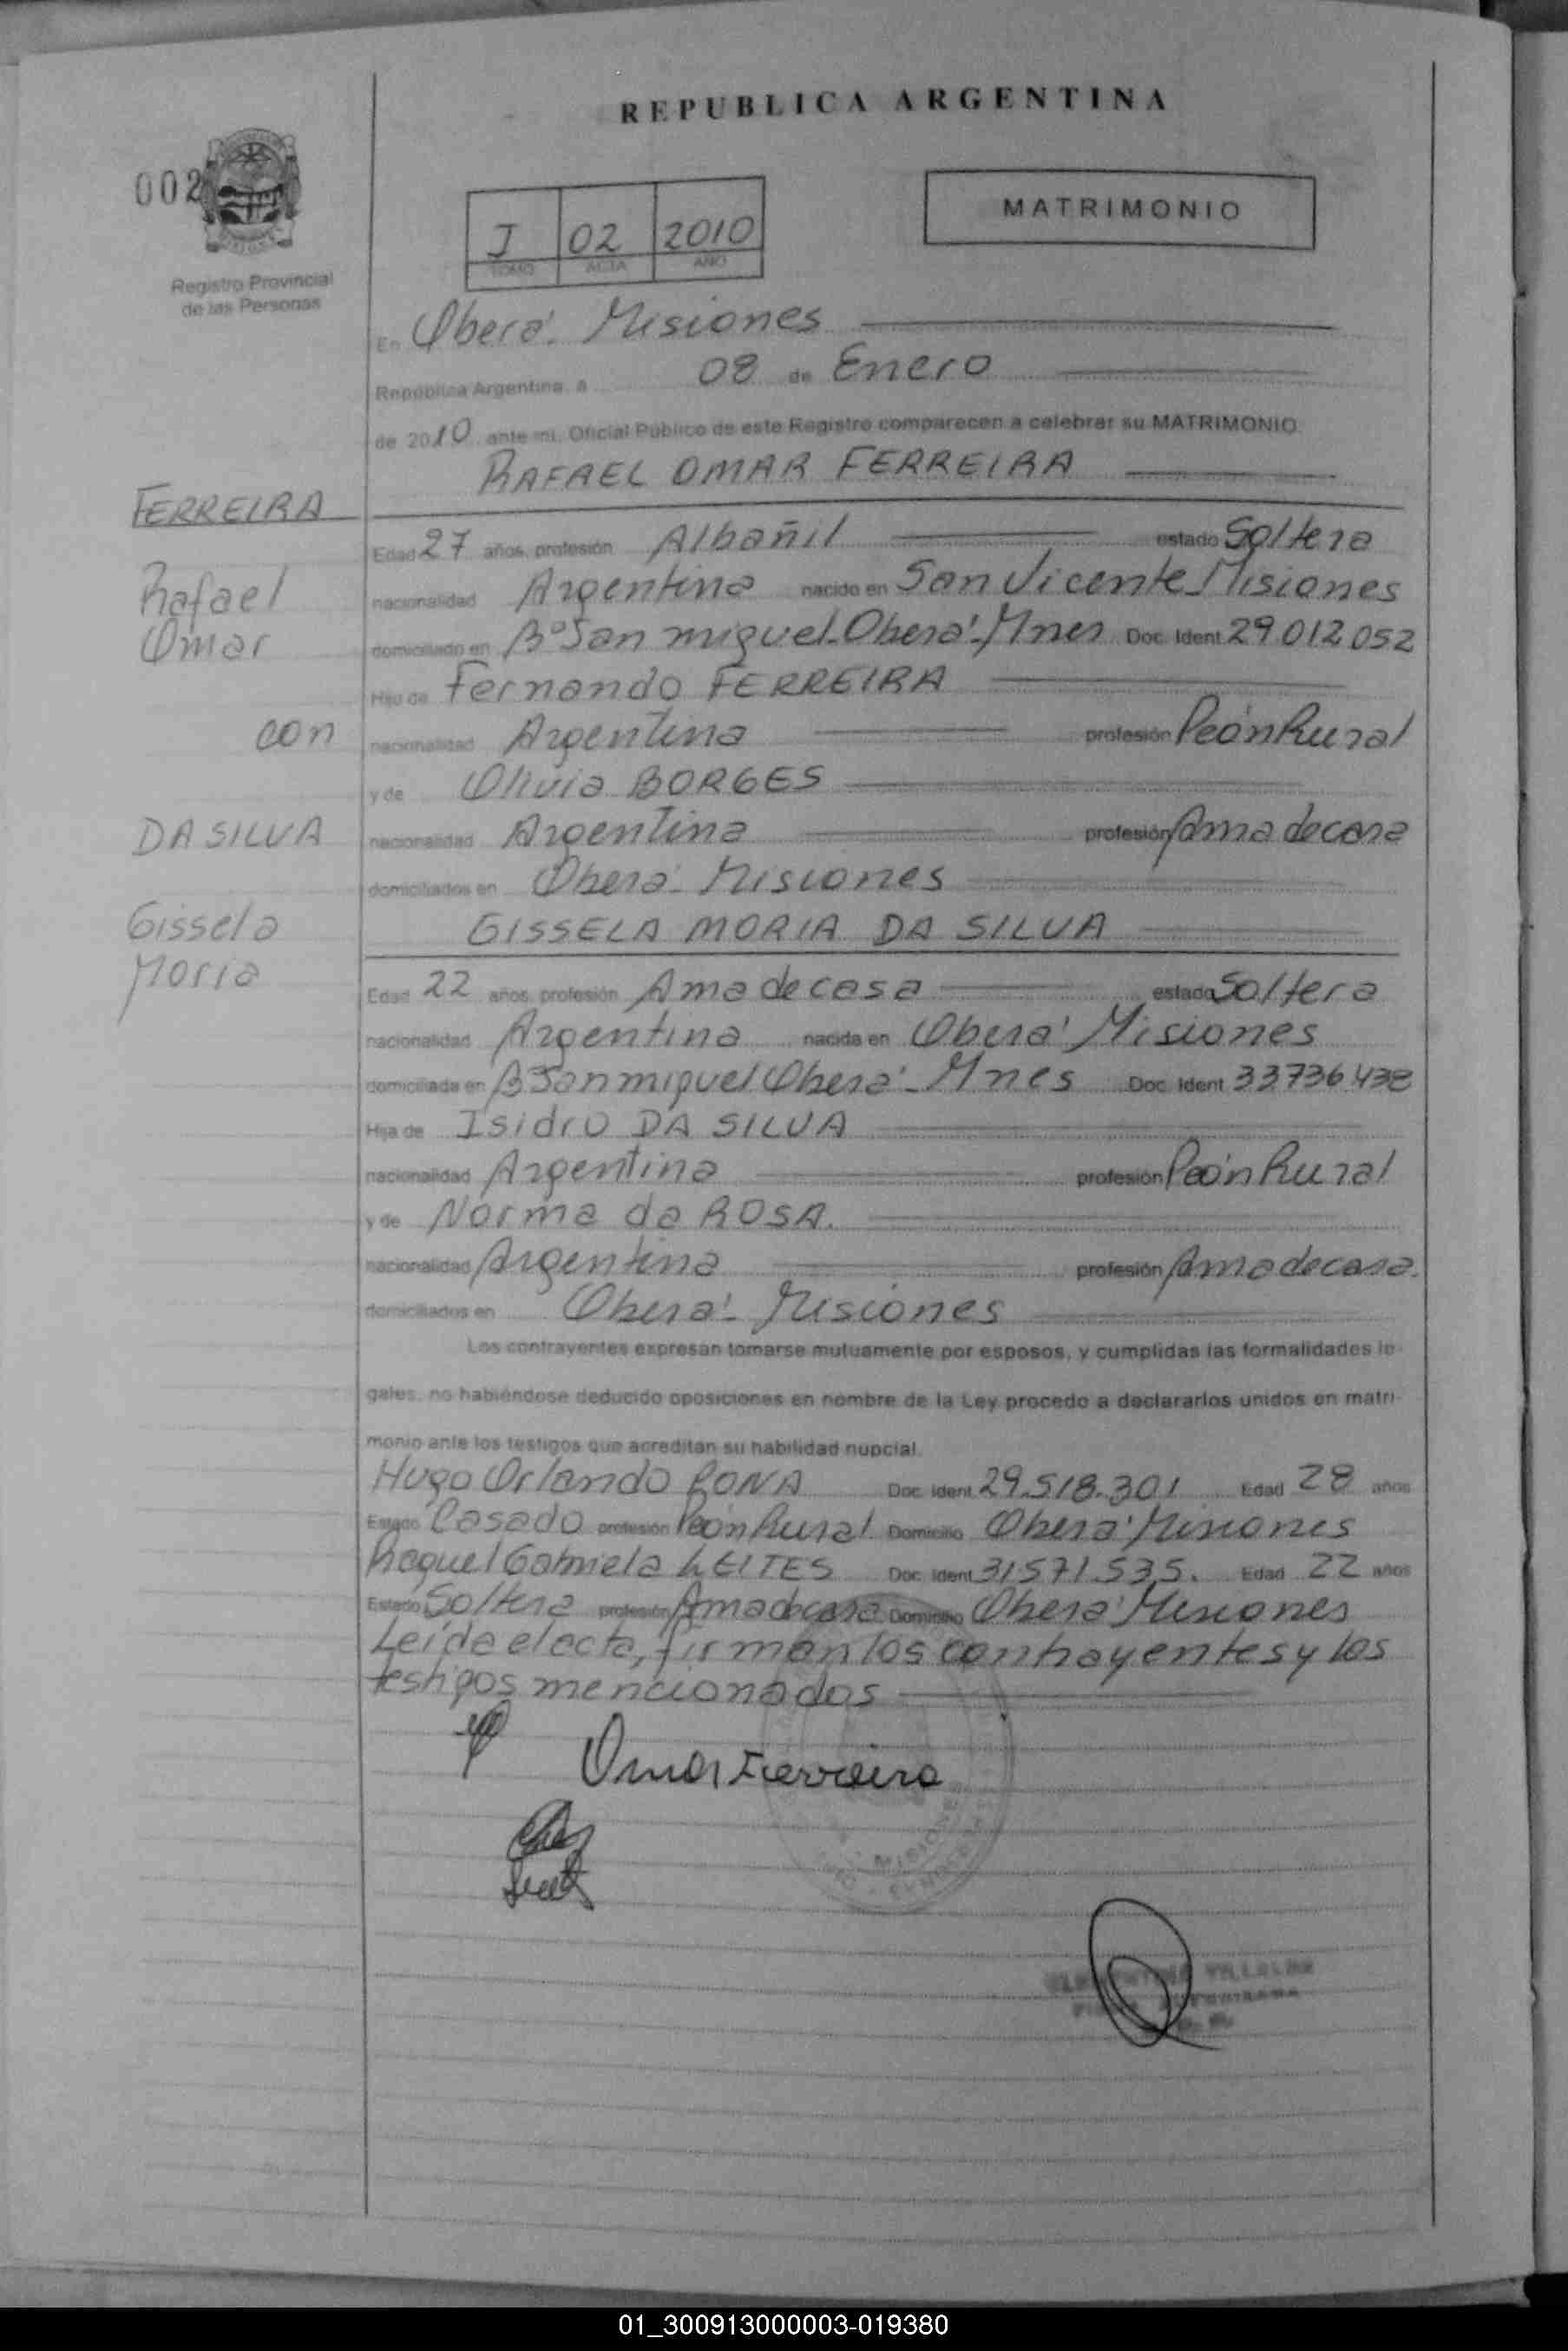 REPUBLICA ARGENTINA
002
MATRIMONIO
I 02 2010
TOMO ACTA AÑO
Registro Provincial
de las Personas
En Oberá. Misiones
República Argentina, a 08 de Enero
de 2010 ante mi, Oficial Público de este Registro comparecen a celebrar su MATRIMONIO
RAFAEL OMAR FERREIRA
FERREIRA
Edad 27 años, profesión Albañil estado Soltero
Rafael
nacionalidad Argentina nacido en San Vicente Misiones
Omar
domiciliado en B° San miguel-Oberá-Mnes Doc. Ident. 29.012.052
Hijo de Fernando FERREIRA
con
nacionalidad Argentina profesión Peón Rural
y de Olivia BORGES
DA SILVA
nacionalidad Argentina profesión Ama de casa
domiciliados en Oberá- Misiones
Gissela
GISSELA MORIA DA SILVA
Moria
Edad 22 años, profesión Ama de casa estado Soltera
nacionalidad Argentina nacida en Oberá Misiones
domiciliada en B San miguel Oberá- Mnes Doc. Ident. 33736438
Hija de Isidro DA SILVA
nacionalidad Argentina profesión Peón Rural
y de Norma da ROSA.
nacionalidad Argentina profesión Ama de casa.
domiciliados en Oberá- Misiones
Los contrayentes expresan tomarse mutuamente por esposos, y cumplidas las formalidades le-
gales, no habiéndose deducido oposiciones en nombre de la Ley procedo a declararlos unidos en matri-
monio ante los testigos que acreditan su habilidad nupcial.
Hugo Orlando Doc. Ident. 29.518.301 Edad 28 años
Estado Casado profesión Peón Rural Domicilio Oberá Misiones
Raquel Gabriela LEITES Doc. Ident. 31571.535. Edad 22 años
Estado Soltera profesión Ama de casa Domicilio Oberá Misiones
Leída el acta, firman los contrayentes y los
testigos mencionados
Omar Ferreira
MISIONES
VILLALBA
01_300913000003-019380